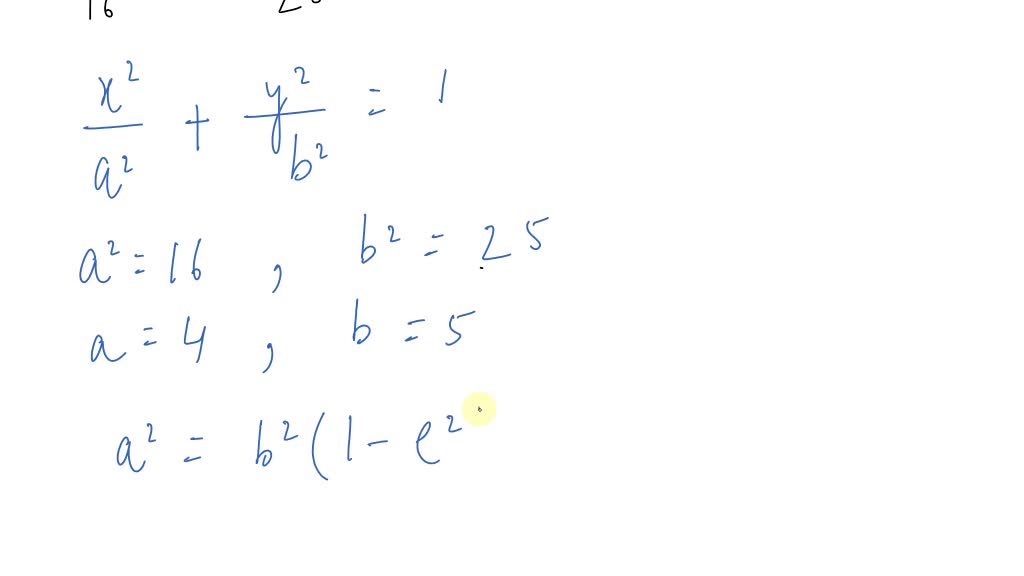 16
x² / a² + y² / b² = 1
a² = 16 , b² = 25
a = 4 , b = 5
a² = b² ( 1 - e²